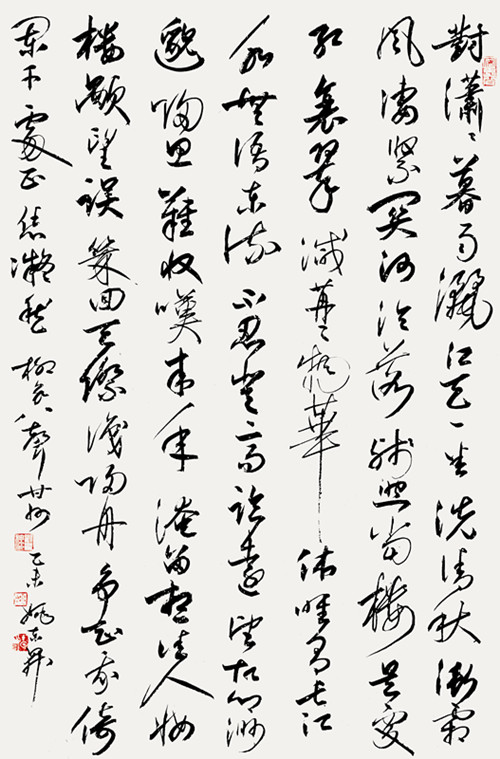 對瀟〻暮雨灑江天一番洗清秋漸霜
風淒緊關河冷落殘照當樓是處
紅衰翠減苒〻物華休唯有長江
水無語東流不忍登高臨遠望故鄉渺
邈歸思難收嘆來年淹留想佳人妝
樓顒望誤幾回天際識歸舟爭知我倚
闌干處正恁凝愁 柳永八聲甘州 乙未 姚東昇